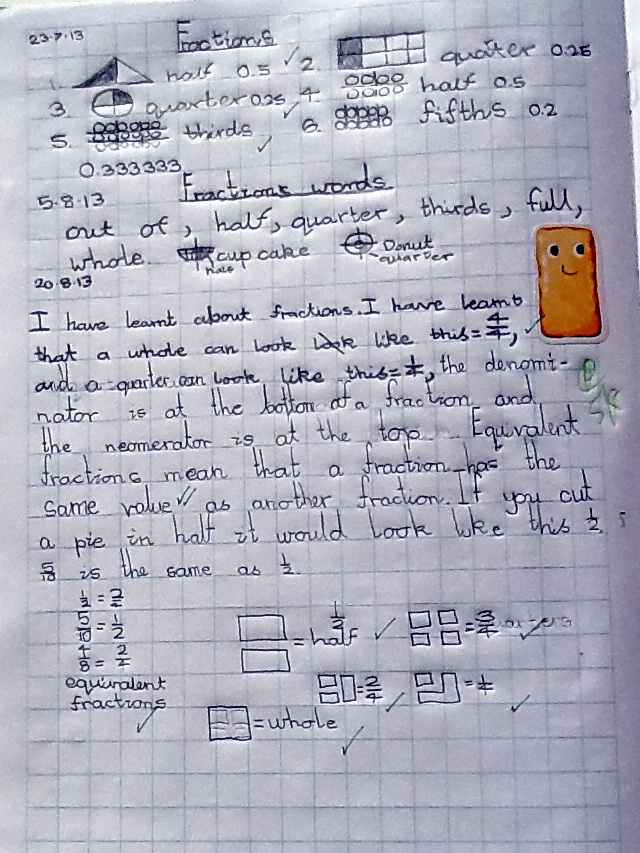 23.7.13 Fractions
1. half 0.5 2. quater 0.25
3. quarter 0.25 4. half 0.5
5. thirds 6. fifths 0.2
0.333333
5.8.13 Fractions words
out of, half, quarter, thirds, full,
whole. cup cake Donut
half quarter
20.8.13
I have learnt about fractions. I have learnt
that a whole can look look like this = 4/4,
and a quarter can look like this = 1/4, the denomi-
nator is at the bottom of a fraction and
the neomerator is at the top. Equivalent
fractions mean that a fraction has the
same value as another fraction. If you cut
a pie in half it would look like this 1/2
5/10 is the same as 1/2
5/10 = 1/2
equivalent
fractions
1/2
= half = 3/4
= 2/4 = 1/4
= whole